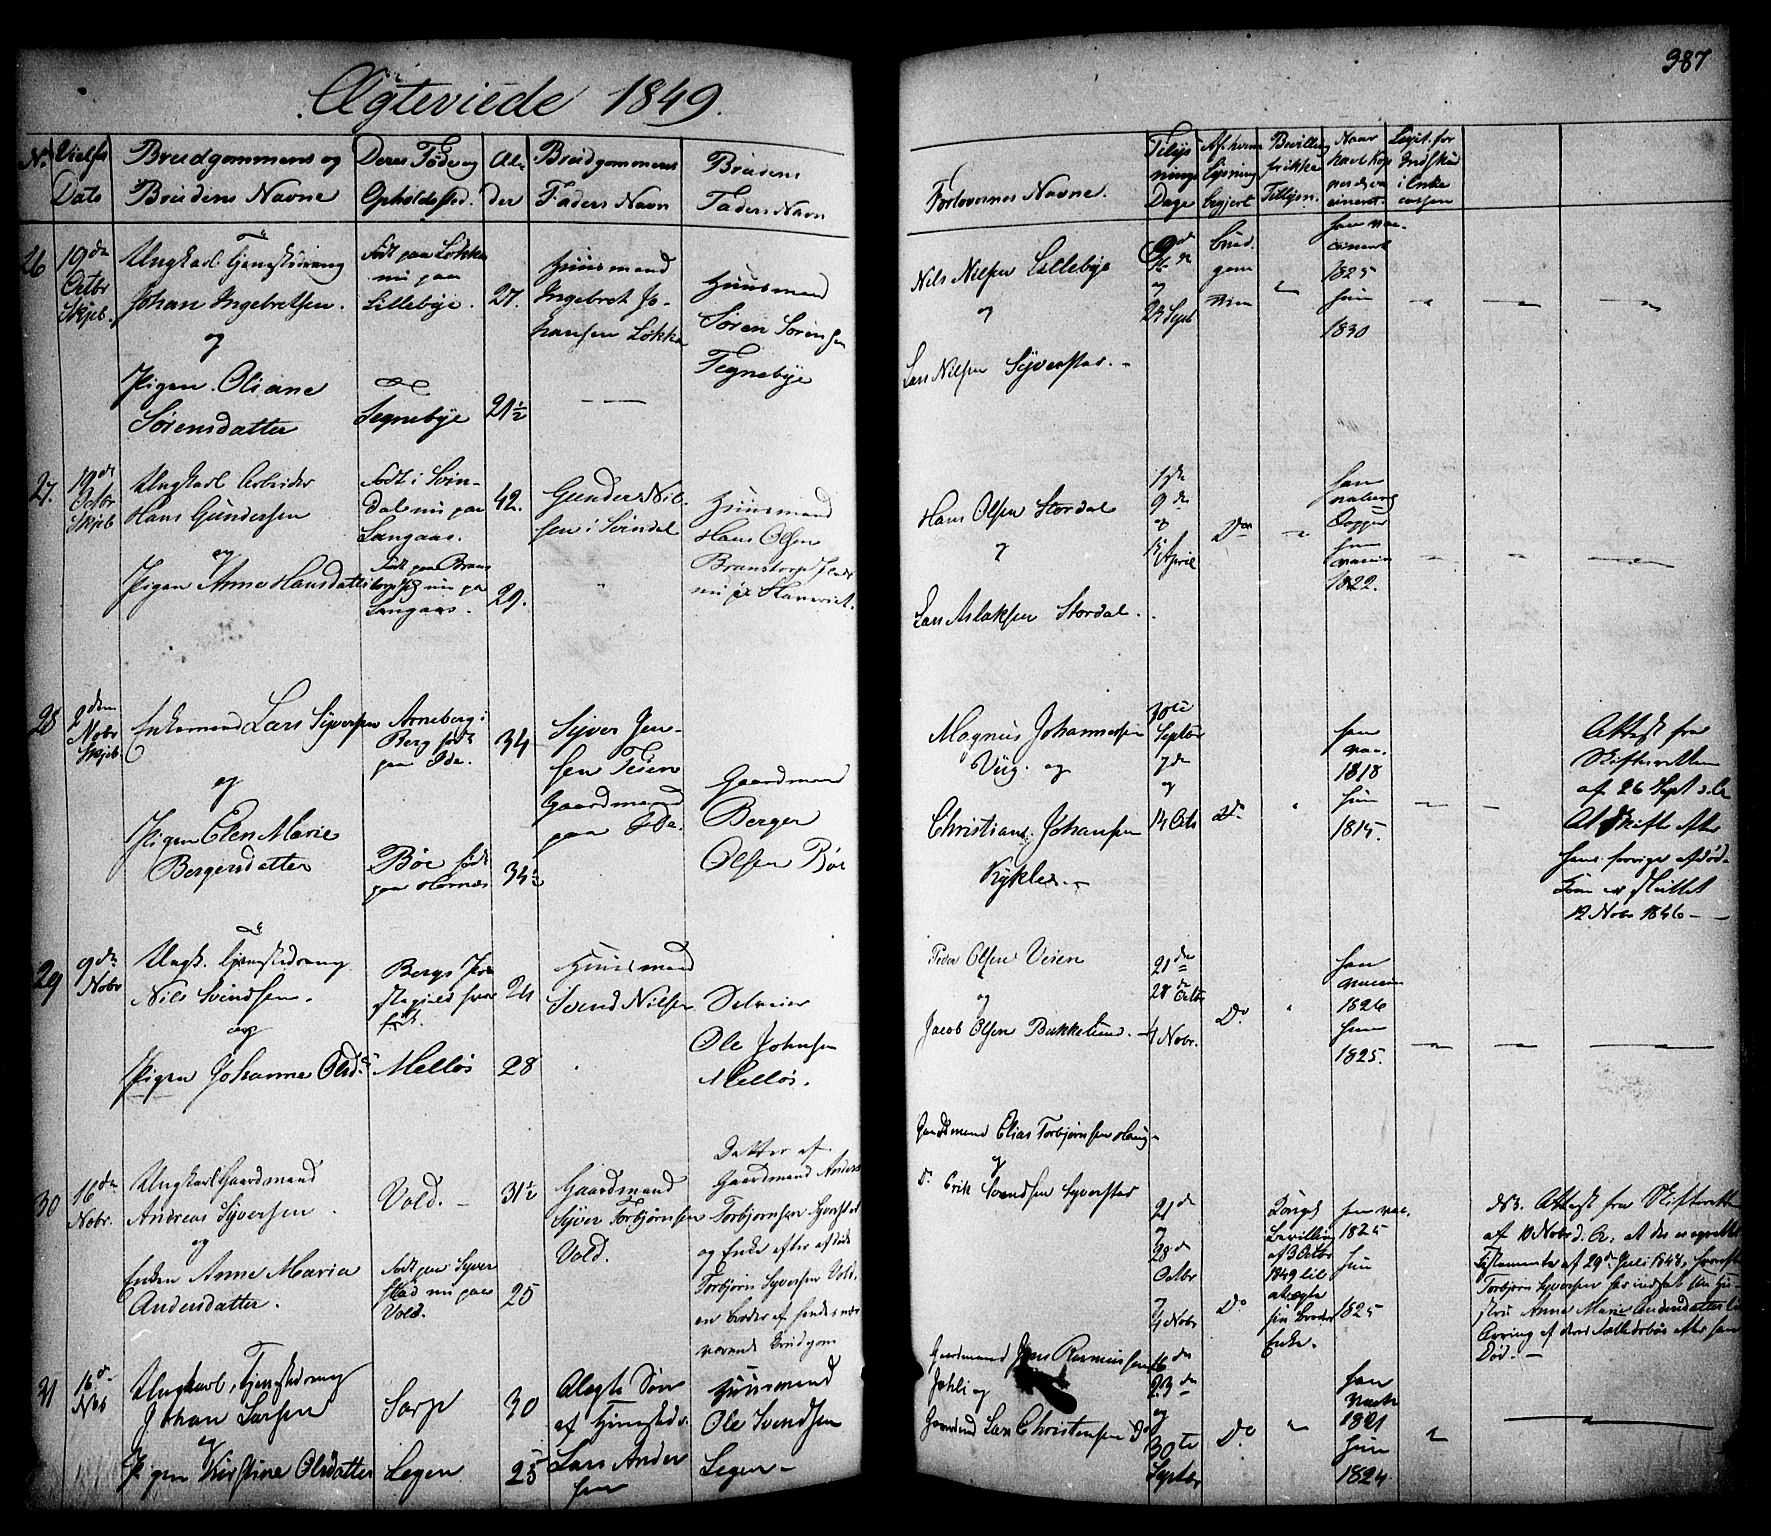 387
Ægteviede 1849.
No Vielses Dato
Brudgommens og Brudens Navne
Deres Føde og Opholdssted.
Alder
Brudgommens Faders Navn
Brudens Faders Navn
Forlovernes Navne.
Tillysnings Dage
Af hvem lysning begjert
Bevilling frikke Tillysn.
Naar havt Kopper el. vaccineret
Legit. for Indskud i Enkecassen
26
19de
Octbr
Skjeb.
Ungkarl Tjenestedreng
Johan Ingebretsen.
og
Pigen Oliane
Sørensdatter
Født paa Løkka
nu paa
Lillebye.
Tegnebye
27.
21½
Huusmand
Ingebret Jo-
hansen Løkka
Huusmand
Søren Sørensen
Tegnebye
Nils Nilsen Lillebye
og
Lars Nilsen Syverstad.
9de
16de
og
23 Septb
Brud-
gom-
men
han vac-
cineret
1825
hun
1830
27.
19de
Octbr
Skjeb
Ungkarl Arbeider
Hans Gundersen
og
Pigen Anne Hansdatter
Født i Svin-
dal nu paa
Langaas.
Født paa Brans
torp nu paa
Langaas.
42.
29.
Gunder Nil-
sen i Svindal
Huusmand
Hans Olsen
Branstorp
Hans Olsen Stordal
og
Lars Aslaksen Stordal.
1ste
9de
og
15 April
Do
han
naturlig
Kopper
hun
vaccin
1822.
28
2den
Nobr
Skjeb.
Enkemand Lars Syversen
og
Pigen Elen Marie
Bergersdatter
Arneberg i
Berg født
paa Ide.
Bøe født
paa Hornæs
34
34½
Syver Jen-
sen Teien
Gaardmand
paa Ide.
Gaardmand
Berger
Olsen Bøe
Magnus Johannesen
Viig. og
Christian Johansen
Kykler.
30te
Septbr
7de
og
14 Octb
Do
han
vac.
1818
hun
1815.
Attest fra
Skifteretten
af 26 Sept
At Skifte efter
hans forrige afdøde
Kone er sluttet
12 Nobr 1846
29
9de
Nobr
Ungk. Tjenestedreng
Nils Svendsen.
og
Pigen Johanne Olsd.
Bergs Præ
stegjeld hvor
født.
Melløs
24
28
Huusmand
Svend Nilsen
Selveier
Ole Johnsen
Melløs.
Peder Olsen Veien
og
Jacob Olsen Bakkelund.
21de
28de Octbr
4 Nobr.
Do
han
vaccin
1826
hun
1825.
30
16de
Nobr.
Ungkarl Gaardmand
Andreas Syversen.
og
Enken Anne Maria
Andersdatter.
Vold.
født paa Syver
stad nu paa
Vold.
31½
25
Gaardmand
Syver Torbjørnsen
Vold.
Datter af
Gaardmand Anders
Torbjørnsen Syverstad
og Enke efter afdøde
Torbjørn Syversen Vold.
en broder af hendes nu
værende Brudgom
Gaardmand Elias Torbjørnsen Haug
og
Do Erik Svendsen Syverstad
21de
og
28de
Octbr
og
4 Nobr
Do
Kongel
Bevilling
af 3 Octbr
1849 til
at ægte
sin broders
Enke.
han vac.
1825
hun
1825
NB. Attest fra Skifteretten
af 10 Nobr d. A. at der er oprettet
Testamente af 29de Juli 1848, hvorefter
Torbjørn Syversen har indsat sin Hu-
stru Anne Marie Andersdatter til
Arving af deres Fællesboe efter hans
Død.
31
16de
Nobr
Ungkarl, Tjenestedreng
Johan Larsen
og
Pigen Kirstine Olsdatter
Sarp
Legen
30
25
Ægte Søn
af Tjenestedr.
Lars Ander
sen
Huusmand
Ole Svendsen
Legen
Gaardmand Jens Rasmussen
og
Gaardmd Lars Christensen Do
16de
23de
og
30te
Septbr
Do
han
vacc
1821
hun
1824